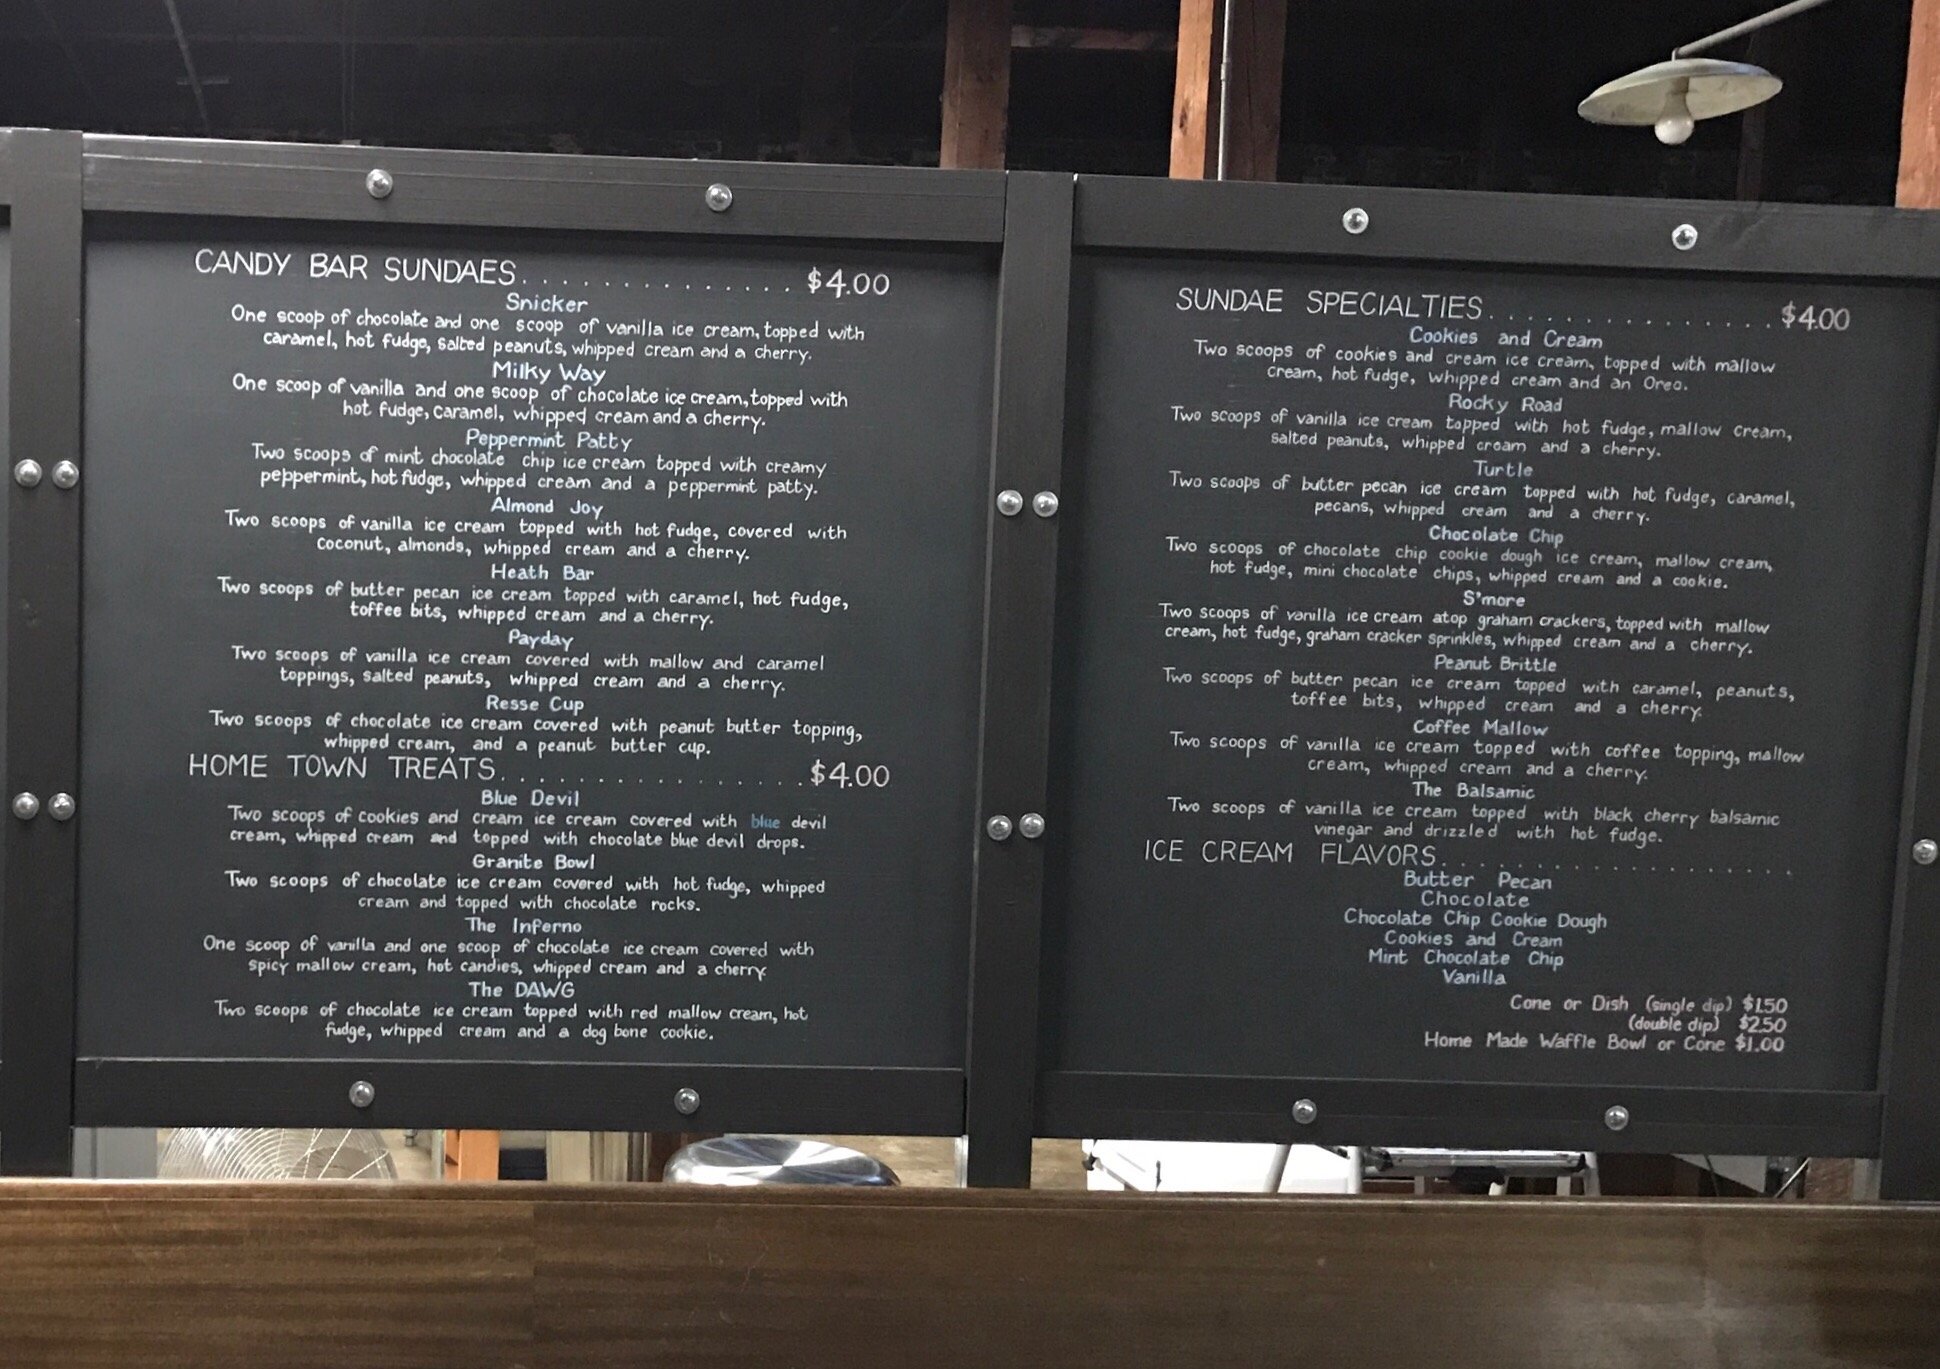 CANDY BAR SUNDAES. . . . . . . . . . . . . . $4.00
Snicker
One scoop of chocolate and one scoop of vanilla ice cream, topped with
caramel, hot fudge, salted peanuts, whipped cream and a cherry.
Milky Way
One scoop of vanilla and one scoop of chocolate ice cream, topped with
hot fudge, caramel, whipped cream and a cherry.
Peppermint Patty
Two scoops of mint chocolate chip ice cream topped with creamy
peppermint, hot fudge, whipped cream and a peppermint patty.
Almond Joy
Two scoops of vanilla ice cream topped with hot fudge, covered with
coconut, almonds, whipped cream and a cherry.
Heath Bar
Two scoops of butter pecan ice cream topped with caramel, hot fudge,
toffee bits, whipped cream and a cherry.
Payday
Two scoops of vanilla ice cream covered with mallow and caramel
toppings, salted peanuts, whipped cream and a cherry.
Resse Cup
Two scoops of chocolate ice cream covered with peanut butter topping,
whipped cream, and a peanut butter cup.
HOME TOWN TREATS. . . . . . . . . . . . . . . . $4.00
Blue Devil
Two scoops of cookies and cream ice cream covered with blue devil
cream, whipped cream and topped with chocolate blue devil drops.
Granite Bowl
Two scoops of chocolate ice cream covered with hot fudge, whipped
cream and topped with chocolate rocks.
The Inferno
One scoop of vanilla and one scoop of chocolate ice cream covered with
spicy mallow cream, hot candies, whipped cream and a cherry
The DAWG
Two scoops of chocolate ice cream topped with red mallow cream, hot
fudge, whipped cream and a dog bone cookie.
SUNDAE SPECIALTIES. . . . . . . . . . . . . . . $4.00
Cookies and Cream
Two scoops of cookies and cream ice cream, topped with mallow
cream, hot fudge, whipped cream and an Oreo.
Rocky Road
Two scoops of vanilla ice cream topped with hot fudge, mallow cream,
salted peanuts, whipped cream and a cherry.
Turtle
Two scoops of butter pecan ice cream topped with hot fudge, caramel,
pecans, whipped cream and a cherry.
Chocolate Chip
Two scoops of chocolate chip cookie dough ice cream, mallow cream,
hot fudge, mini chocolate chips, whipped cream and a cookie.
S'more
Two scoops of vanilla ice cream atop graham crackers, topped with mallow
cream, hot fudge, graham cracker sprinkles, whipped cream and a cherry.
Peanut Brittle
Two scoops of butter pecan ice cream topped with caramel, peanuts,
toffee bits, whipped cream and a cherry.
Coffee Mallow
Two scoops of vanilla ice cream topped with coffee topping, mallow
cream, whipped cream and a cherry.
The Balsamic
Two scoops of vanilla ice cream topped with black cherry balsamic
vinegar and drizzled with hot fudge.
ICE CREAM FLAVORS. . . . . . . . . . . . . . . . . . .
Butter Pecan
Chocolate
Chocolate Chip Cookie Dough
Cookies and Cream
Mint Chocolate Chip
Vanilla
Cone or Dish (single dip) $1.50
(double dip) $2.50
Home Made Waffle Bowl or Cone $1.00